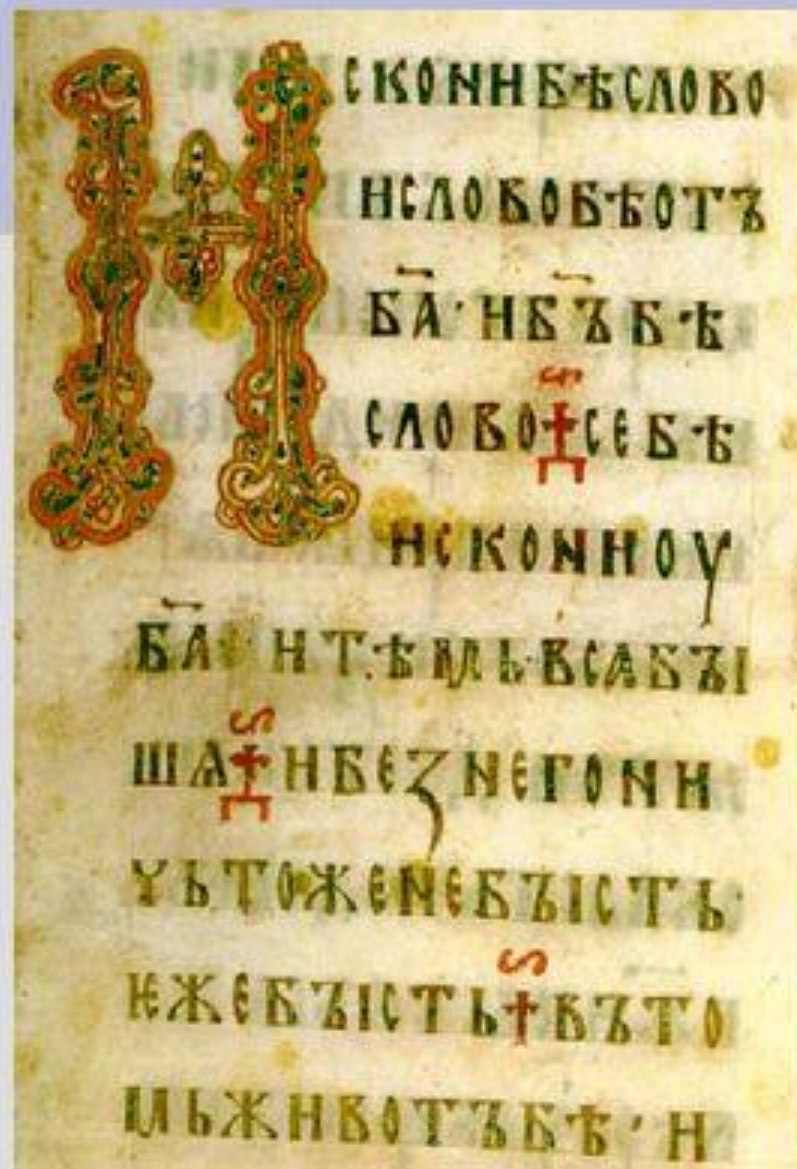 Искони бѣ слово
и слово бѣ отъ
Б҃а · и Б҃ъ бѣ
слово се бѣ
искони оу
Б҃а и тѣмь вса бꙑ
шѧ и без него ни
чьто же не бꙑсть ·
ѥже бꙑсть въ то
мь животъ бѣ · и